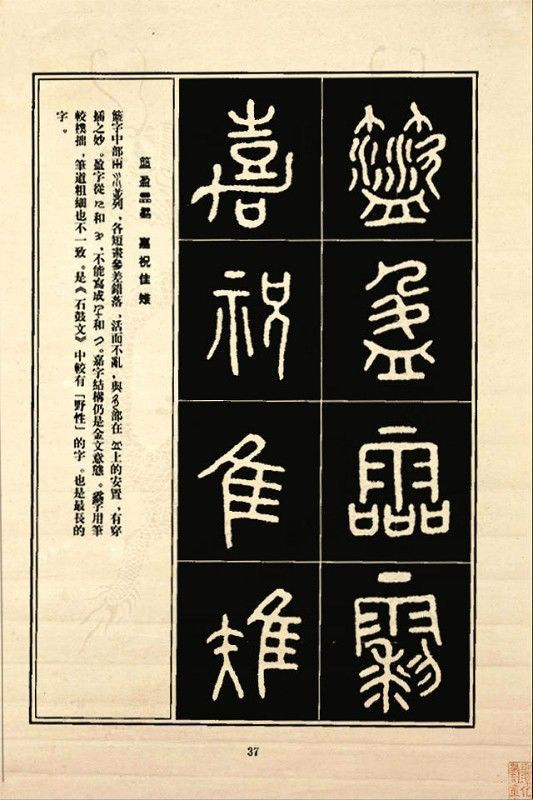 盈
霝
嘉
祝
隹
雉
盈霝 嘉祝隹雉
字中部兩並列，各短畫參差錯落，活而不亂，與部在上的安置，有穿
插之妙。盈字從和，不能寫成和。嘉字結構仍是金文意態。字用筆
較樸拙，筆道粗細也不一致。是《石鼓文》中較有「野性」的字。也是最長的
字。
37